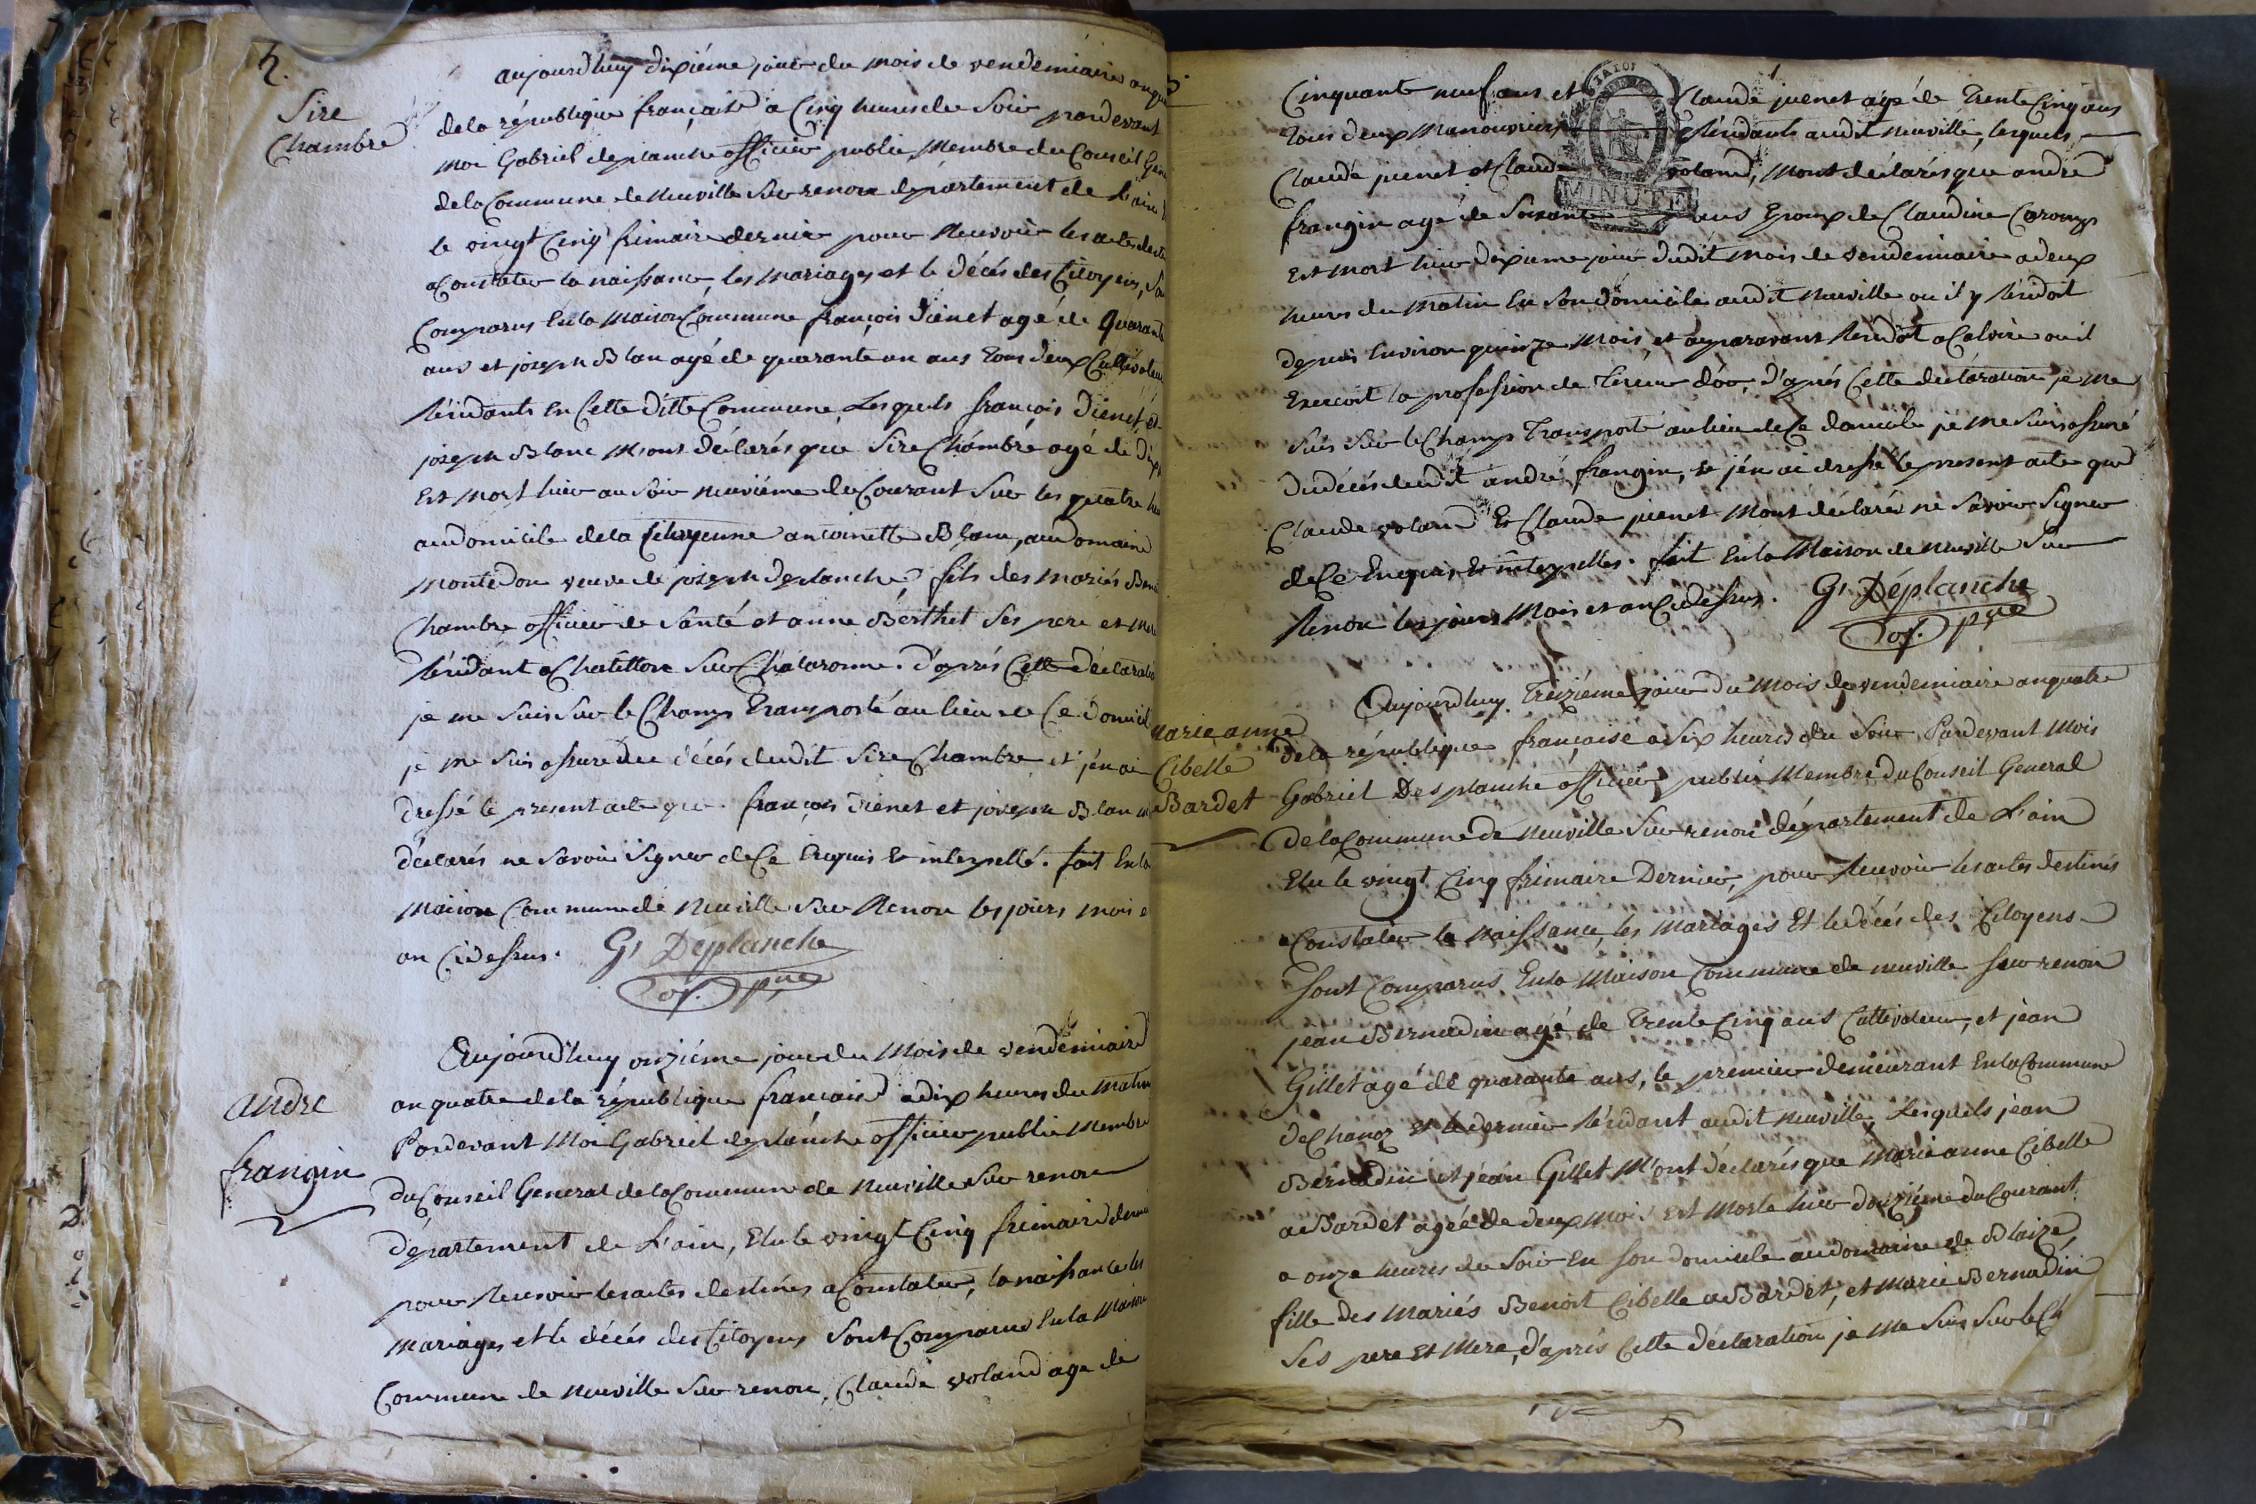 2.
Sire
Chambre
aujourdhuy dixiéme jour du mois de vendemiaire an qua
de la république française a Cinq heures du Soir pardevant
moi Gabriel deplanche officier public, Membre du Conseil Gene
de la Commune de Neuville Sur renon département de L'ain
le vingt Cinq frimaire dernier pour Recevoir les actes desti
a Constater la naissance, les mariages et le décés des Citoyens, So
Comparus En la Maison Commune françois Diénet agé de Quarante
ans et joseph Blan agé de quarante un ans tous deux Cultivateu
Résidants En Cette ditte Commune Lesquels françois Dienet, et
joseph Blanc M'ont déclarés que Sire Chambre agé de dix
Est mort hier au Soir neuviéme du Courant Sur les quatre heu
au domicile de la Citoyenne antoinette Blanc, au domaine
Montedon veuve de joseph deplanche, fils des mariés Beno
Chambre officier de Santé et anne Berthet Ses pere et mere
Résidant a Chatillon Sur Chalaronne. d'aprés Cette déclaratio
je me Suis Sur le Champ Transporté au lieu de Ce domicil
je me Suis assuré du décés dudit Sire Chambre et j'en ai
dressé le present acte que françois Dienet et joseph Blan m
déclarés ne Savoir Signer de Ce Enquis Et interpellé. fait En la
Maison Commune de Neuville Sur Renon les jours mois e
an Cidessus. G. Déplanche
of. pue
andre
frangin
Aujourd'huy onziéme jour du Mois de vendémiaire
an quatre de la république francaise a dix heures du Matin
Pardevant Moi Gabriel deplanche officier public Membre
du Conseil General de la Commune de Neuville Sur renon
département de L'ain, Elu le vingt Cinq frimaire derni
pour Recevoir les actes destinés a Constater, la naissance les
mariages et le décés des Citoyens Sont Comparus En la Maison
Commune de Neuville Sur renon, Claude voland agé de
3.
Cinquante neuf ans et Claude juenet agé de Trente Cinq ans
Tous deux Manouvriers Résidants audit Neuville, lesquels
Claude juenet et Claude voland, M'ont déclarés que andré
frangin agé de Soixante ans Epoux de Claudine Caromp
Est Mort hier dixieme jour dudit Mois de Vendemiaire a deux
heures du Matin En Son domicile audit Neuville ou il y Résidoit
depuis Environ quinze Mois, et auparavant Residoit a Caloire ou il
Exercoit la profession de Tireur d'or, d'aprés Cette déclaration je me
Suis Sur le Champ Transporté au lieu de Ce domicile je me Suis assuré
du décés dudit andré frangin, et j'en ai dressé le present acte que
Claude voland Et Claude juenet M'ont déclarés ne Savoir Signer
de Ce Enquis Et interpellés. fait En la Maison de Neuville Sur
Renon les jours Mois et an Cidessus. G. Déplanche
of. pue
MINUTE
Marie anne
Cibelle
a Bardet
Aujourdhuy Treiziéme jour du Mois de vendemiaire an quatre
de la république française a Six heures du Soir Pardevant Mois
Gabriel Desplanche officier public Membre du Conseil General
de la Commune de Neuville Sur renon département de L'ain
Elu le vingt Cinq frimaire Dernier, pour Recevoir les actes destinés
a Constater la Naissance, les Mariages Et le décés des Citoyens
Sont Comparus En la Maison Commune de neuville Sur renon
jean Bernadin agé de Trente Cinq ans Cultivateur, et jean
Gillet agé de quarante ans, le premier demeurant En la Commune
de Chanoz et le dernier Résidant audit Neuville, Lesquels jean
Bernadin et jean Gillet M'ont déclarés que Marie anne Cibelle
a Bardet agée de deux Mois Est Morte hier douziéme du Courant
a onze heures du Soir En Son domicile au domaine de Blaize,
fille des Mariés Benoit Cibelle a Bardet, et Marie Bernadin
Ses pere Et Mere, d'aprés Cette déclaration je Me Suis Sur le Ch